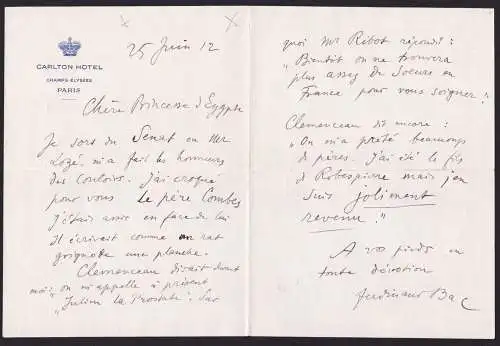 CARLTON HOTEL
CHAMPS-ÉLYSÉES
PARIS
25 Juin 12
Chère Princesse d'Egypte
Je sors du Senat ou Mr
Lozé m'a fait les honneurs
des Couloirs. J'ai croqué
pour vous le père Combes
J'étais assis en face de lui
Il écrivait comme un rat
grignote une planche.
Clemenceau disait devant
moi: on m'appelle à présent
"Julien la Prostate". Sur
quoi Mr Ribot répondit:
"Bientôt on ne trouvera
plus assez de Soeurs en
France pour vous soigner"
Clemenceau dit encore:
"On m'a prêté beaucoup
de pères. J'ai été le fils
de Robespierre mais j'en
suis joliment
revenu."
A vos pieds en
toute dévotion
Ferdinand Bac